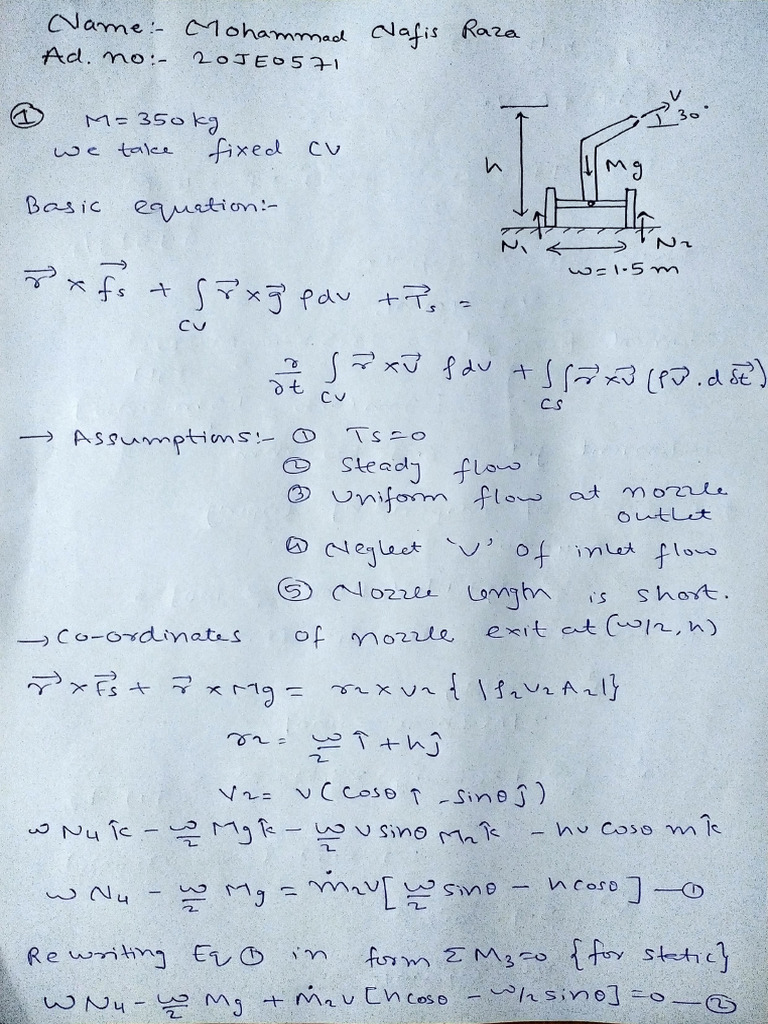 Name:- Mohammad Nafis Raza
Ad. no:- 20JE0571
① M = 350 kg
we take fixed CV
V
30°
h
Mg
N₁
N₂
w = 1.5 m
Basic equation:-
r⃗ × f⃗s + ∫ r⃗ × g⃗ ρdv + T⃗s =
CV
∂/∂t ∫ r⃗ × v⃗ ρdv + ∫∫ r⃗ × v⃗ (ρv⃗ . d
CV
CS
→ Assumptions:- ① Ts = 0
② Steady flow
③ Uniform flow at nozzle
outlet
④ Neglect 'V' of inlet flow
⑤ Nozzle length is short.
→ Co-ordinates of nozzle exit at (w/2, h)
r⃗ × F⃗s + r⃗ × Mg = r2 × v2 { |ρ2 V2 A2| }
r2 = w/2 î + hĵ
V2 = v (cosθ î - sinθ ĵ)
w N4 k̂ - w/2 Mg k̂ - w/2 v sinθ m2 k̂ - hv cosθ m k̂
w N4 - w/2 Mg = ṁ2v [w/2 sinθ - h cosθ] — ①
Rewriting Eq ① in form Σ M3 = 0 {for static}
w N4 - w/2 Mg + ṁ2v [h cosθ - w/2 sinθ] = 0 — ②